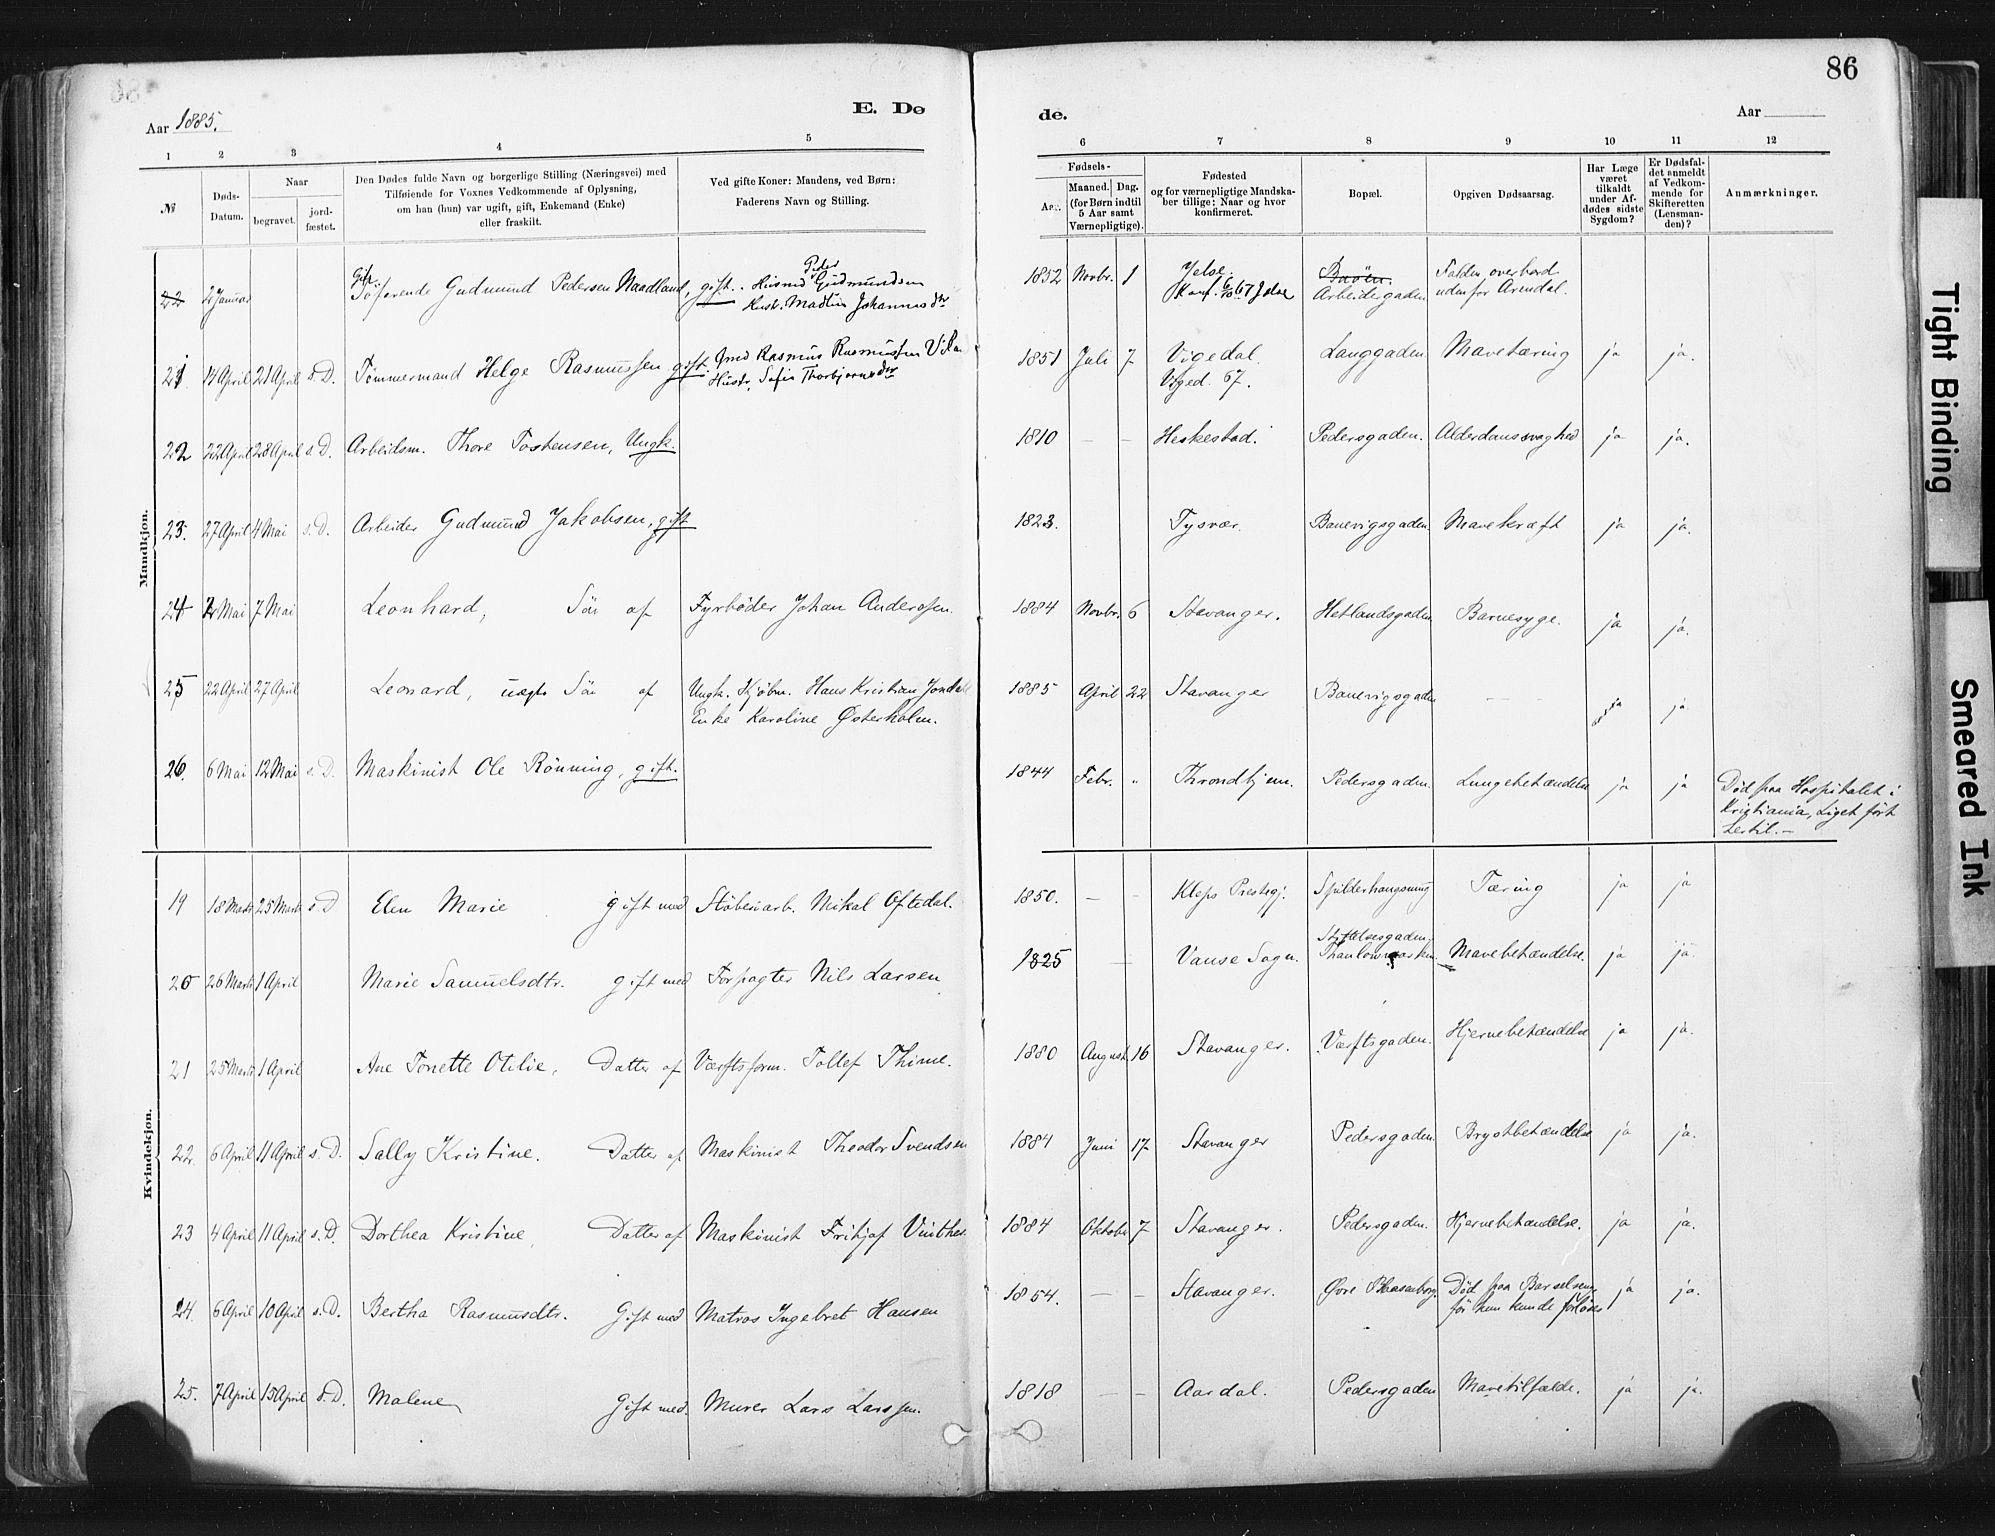 86
Aar 1885.
E. Dø
de.
Aar
1 2 3 4 5 6 7 8 9 10 11 12
№
Døds-Datum.
Naar
begravet.
jord-fæstet.
Den Dødes fulde Navn og borgerlige Stilling (Næringsvei) med
Tilføiende for Voxnes Vedkommende af Oplysning,
om han (hun) var ugift, gift, Enkemand (Enke)
eller fraskilt.
Ved gifte Koner: Mandens, ved Børn:
Faderens Navn og Stilling.
Fødsels-
Aar.
Maaned. Dag.
(for Børn indtil
5 Aar samt
Værnepligtige).
Fødested
og for værnepligtige Mandska-
ber tillige: Naar og hvor
konfirmeret.
Bopæl.
Opgiven Dødsaarsag.
Har Læge
været
tilkaldt
under Af-
dødes sidste
Sygdom?
Er Dødsfal-
det anmeldt
af Vedkom-
mende for
Skifteretten
(Lensman-
den)?
Anmærkninger.
Mandkjøn.
22 2 Januar Søfarende Gudmund Pedersen Naadland, gift. Husmd Peder Gudmundsen 1852 Novbr. 1 Jelse. Falden overbord
Hustr. Madlin Johannesdtr Konf. 67 Jelse Arbeidergaden udenfor Arendal.
21 14 April 21 April s. D. Tømmermand Helge Rasmussen gift. Rasmus Rasmussen 1851 Juli 7 Vigedal. Langgaden Mavetæring ja ja.
Hustr. Sofie Thorbjørnsdtr Viged. 67.
22 22 April 28 April s. D. Arbeidsm. Thore Tostensen, Ungk. 1810 — — Heskestad. Pedersgaden. Alderdomssvaghed ja ja.
23. 27 April 4 Mai s. D. Arbeider Gudmund Jakobsen, gift 1823. Tysvær. Banevigsgaden. Mavekræft ja ja.
24 2 Mai 7 Mai Leonhard, Søn af Fyrbøder Johan Andersen. 1884 Novbr. 6 Stavanger. Hetlandsgaden Barnesyge. ja ja.
25 22 April 27 April Leonard, uægte Søn af Ungk. Kjøbm. Hans Kristian 1885 April 22 Stavanger Banevigsgaden — — ja
Enke Karoline Østerholm.
26. 6 Mai 12 Mai s. D. Maskinist Ole Rønning, gift. 1844 Febr. " Throndhjem. Pedersgaden. Lungebetændelse ja ja Død paa Hospitalet i
Kristiania, Liget ført
hertil. —
Kvindekjøn.
19 18 Marts 25 Marts s. D Elen Marie gift med Støberiarb. Mikal Oftedal. 1850. — — Kleps Prestegj. Spilderhaugsmug Tæring ja ja
Stiftelsesgaden.
20 26 Marts 1 April Marie Samuelsdtr. gift med Forpagter Nils Larsen 1825 — Vanse Sogn. Mavebetændelse. ja ja.
21 25 Marts 1 April Ane Tonette Otilie, Datter af Værftsform. Tollef Thime. 1880 August 16 Stavanger. Værftsgaden. Hjernebetændelse ja ja.
22. 6 April 11 April s. D. Sally Kristine. Datter af Maskinist Theodor Svendsen 1884 Juni 17 Stavanger Pedersgaden. Brystbetændelse ja ja.
23 4 April 11 April s. D. Dorthea Kristine, Datter af Maskinist Fritjof Vinther 1884 Oktober 7 Stavanger. Pedersgaden. Hjernebetændelse. ja ja.
24. 6 April 10 April s. D. Bertha Rasmusdtr. Gift med Matros Ingebret Hansen 1854. — — Stavanger. Øvre Blaasenborg. Død paa Barselseng ja ja.
før hun kunde forløses
25. 7 April 15 April s. D. Malene Gift med. Murer Lars Larssen. 1818 — — Aardal. Pedersgaden Mavetilfælde. ja ja.
Tight Binding
Smeared Ink